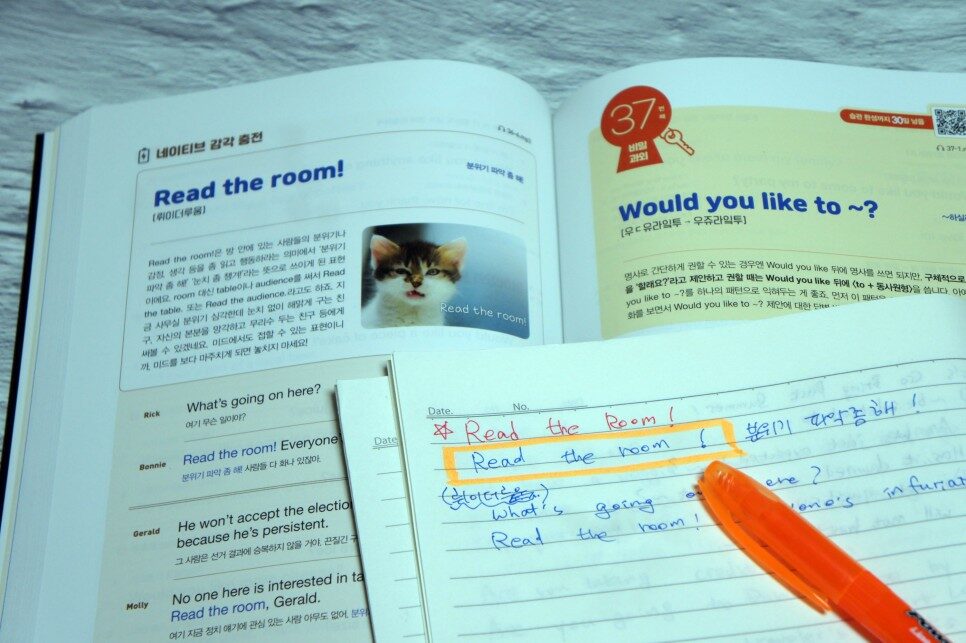 네이티브 감각 충전
Read the room!
[뤼이더루움]
분위기 파악 좀 해!
Read the room!은 방 안에 있는 사람들의 분위기나
감정, 생각 등을 좀 읽고 행동하라는 의미에서 '분위기
파악 좀 해' '눈치 좀 챙겨'라는 뜻으로 쓰이게 된 표현
이에요. room 대신 table이나 audience를 써서 Read
the table. 또는 Read the audience.라고도 하죠. 지
금 사무실 분위기 심각한데 눈치 없이 해맑게 구는 친
구, 자신의 본분을 망각하고 무리수 두는 친구 등에게
써볼 수 있겠네요. 미드에서도 접할 수 있는 표현이니
까, 미드를 보다 마주치게 되면 놓치지 마세요!
Read the room!
Rick
What's going on here?
여기 무슨 일이야?
Bonnie
Read the room! Everyone
분위기 파악 좀 해! 사람들 다 화나 있잖아.
Gerald
He won't accept the election
because he's persistent.
그 사람은 선거 결과에 승복하지 않을 거야. 끈질긴
Molly
No one here is interested in ta
Read the room, Gerald.
여기 지금 정치 얘기에 관심 있는 사람 아무도 없어. 분위
37번째
비밀
과외
습관 완성까지 30일 남음
Would you like to ~?
[우ㄷ유라익투 → 우쥬라익투]
명사로 간단하게 권할 수 있는 경우엔 Would you like 뒤에 명사를 쓰면 되지만, 구체적으로
을 '할래요?'라고 제안하고 권할 때는 Would you like 뒤에 (to + 동사원형)을 씁니다.
you like to ~?를 하나의 패턴으로 익혀두는 게 좋죠. 먼저 이 패턴을
화를 보면서 Would you like to ~? 제안에 대한
Date.
Date. No.
☆ Read the Room!
Read the room! 분위기 파악좀해!
What's going here?
Read the room! one's infuriat